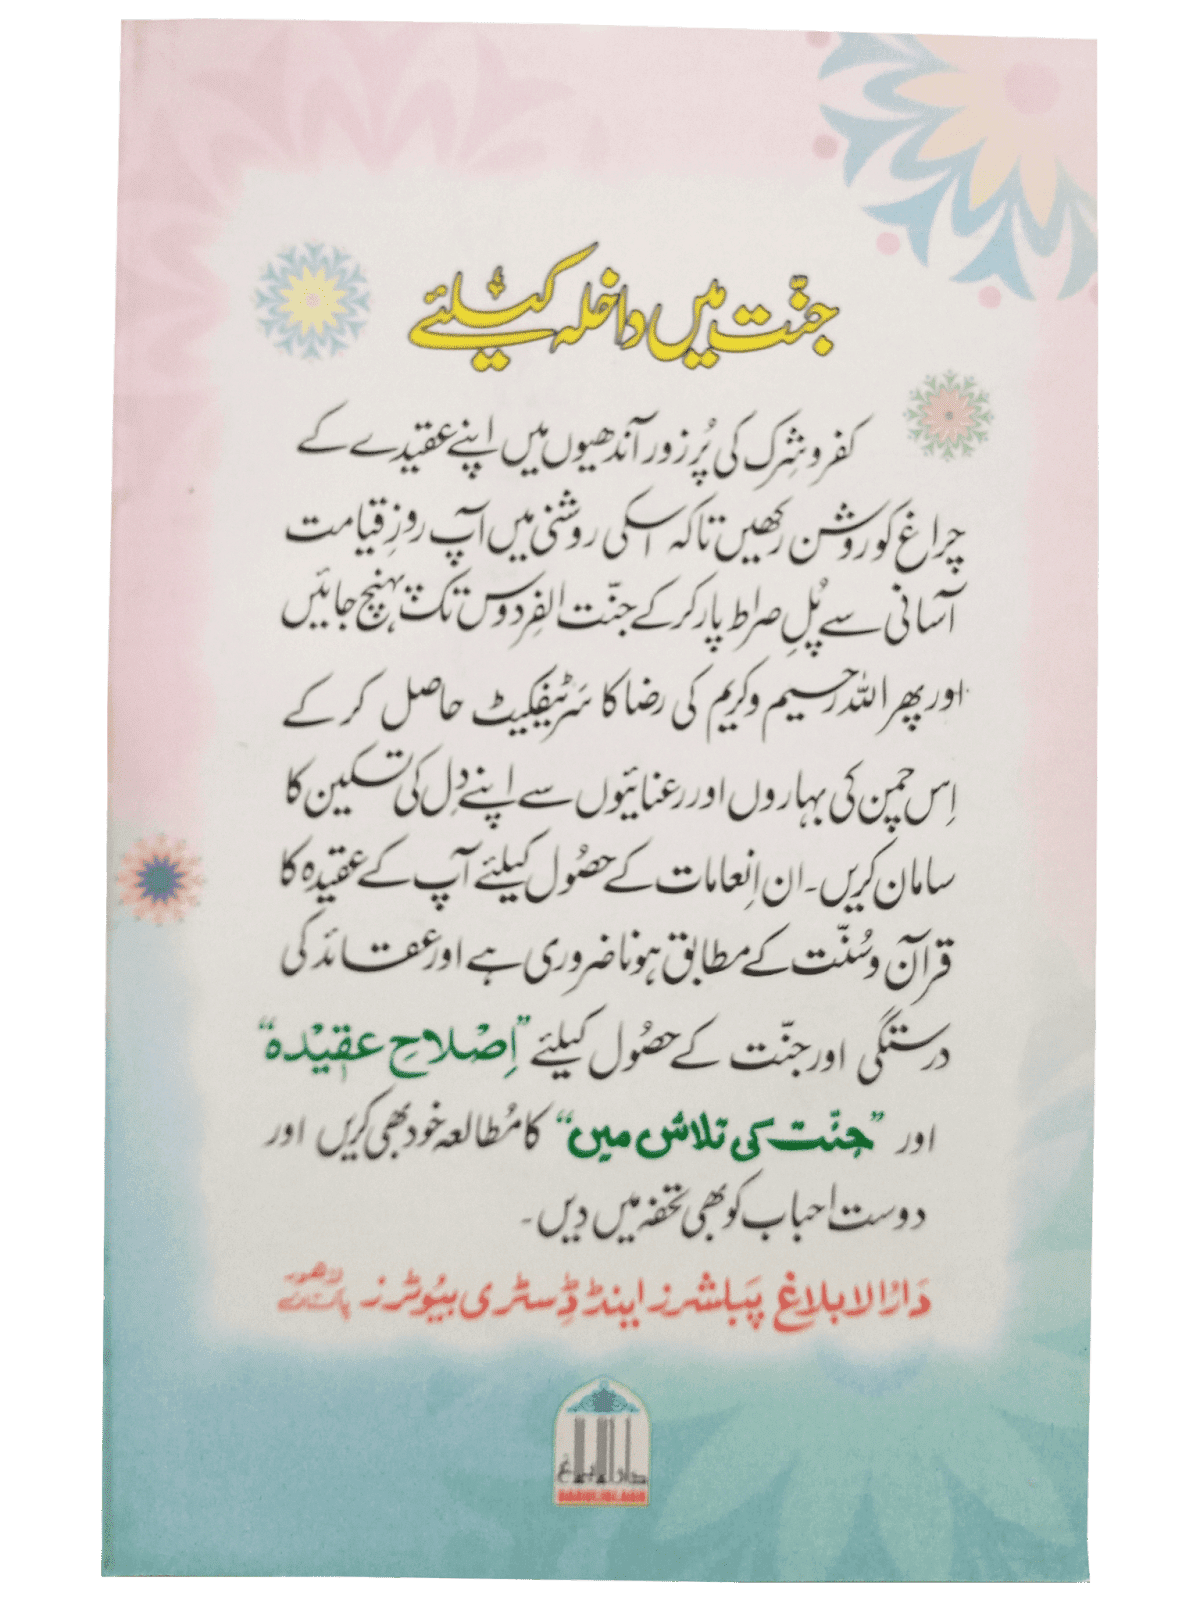 جنّت میں داخلہ کیلئے
کفر و شِرک کی پُر زور آندھیوں میں اپنے عقیدے کے
چراغ کو روشن رکھیں تاکہ اسکی روشنی میں آپ روزِ قیامت
آسانی سے پُلِ صراط پار کر کے جنّت الفِردوس تک پہنچ جائیں
اور پھر اللہ رحیم و کریم کی رضا کا سَرٹیفکیٹ حاصل کر کے
اِس چمن کی بہاروں اور رعنائیوں سے اپنے دِل کی تسکین کا
سامان کریں۔ ان اِنعامات کے حصُول کیلئے آپ کے عقیدہ کا
قرآن و سُنّت کے مطابق ہونا ضروری ہے اور عقائد کی
درستگی اور جنّت کے حصُول کیلئے ”اِصْلاحِ عقِیْدہ“
اور ”جنّت کی تلاش میں“ کا مُطالعہ خود بھی کریں اور
دوست احباب کو بھی تحفہ میں دیں۔
دَارُالابلاغ پَبلشرز اینڈ ڈِسٹری بیُوٹرز لاھور پاکستان
دارالابلاغ
DARUL IBLAGH